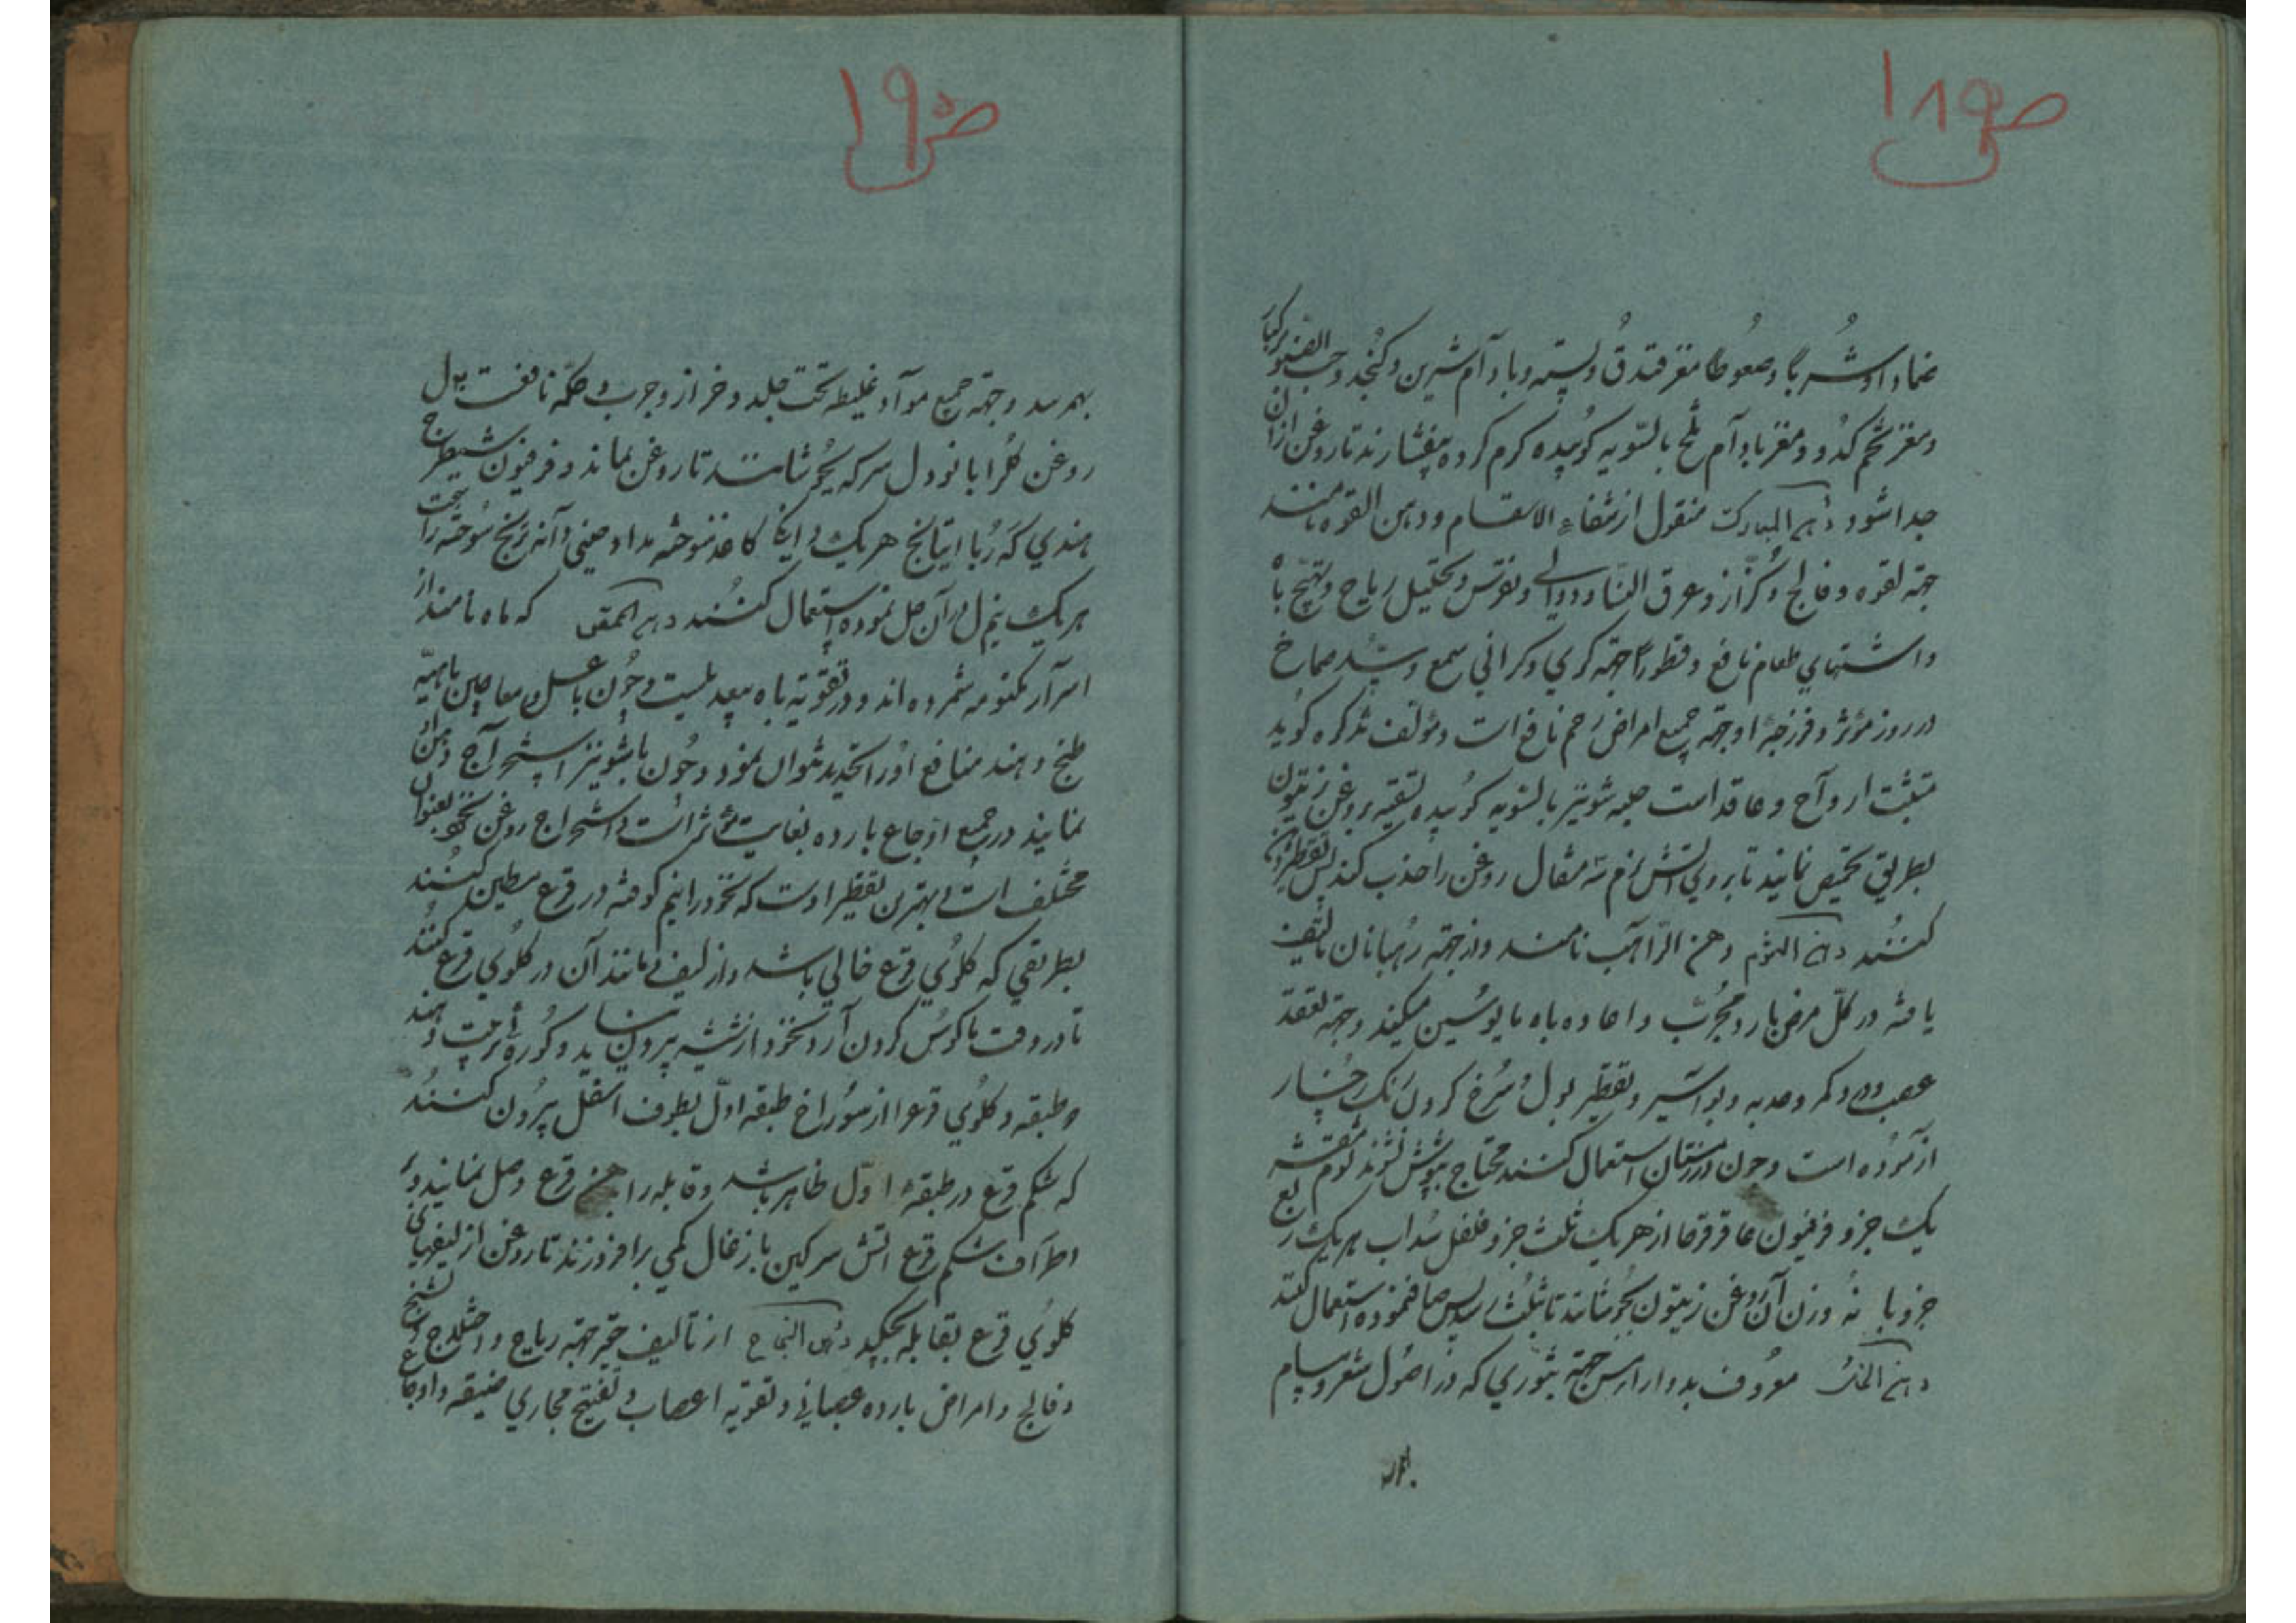 ص ١٨٩
ضمادا و شربا و صعوطا مغز فندق و پسته و بادآم شیرین و کنجد و حب الصنوبر کبار
و مغز تخم کدو و مغز بادآم تلخ بالسّویه کوبیده کرم کرده بیفشارند تا روغن ازان
جدا شود دهن المبارک منقول از شفاء الاسقام و دهن القوه نامند
جهة لقوه و فالج و کزاز و عرق النسا و دوالی و نقرس و تحلیل ریاح و تهیج باه
و اشتهای طعام نافع و قطورا جهة کری و کرانی سمع و سده صماخ
در روز مؤثر و فرزجه او جهة جمیع امراض رحم نافع است و مؤلف تذکره کوید
مثبت ارواح و عاقد است حلبه شونیز بالسّویه کوبیده تسقیه بروغن زیتون
بطریق تحمیص نمایند تا بر روی اتش نرم سه مثقال روغن را جذب کند پس تقطیر
کنند دهن الثوم دهن الرّاهب نامند و از جهة رهبانان تالیف
یافته در کلّ مرض بارد مجرّب و اعاده باه مایوسین میکند و جهة تعقد
عصب و درد کمر و حدبه و بواسیر و تقطیر بول و سرخ کردن رنک رخسار
ازموده است و چون در زمستان استعمال کنند محتاج بپوشش نشوند ثوم مقشر
یک جزو فرفیون عاقرقرحا از هریک ثلث جزو فلفل سداب هریک ربع
جزو با نه وزن آن روغن زیتون بجوشانند تا بثلث رسد پس صاف نموده استعمال کنند
دهن الخل معروف بدوار ارس جهة بثوری که در اصول شعر و مسام
بهم رسد
ص ١٩٠
بهم رسد و جهة جمیع موآد غلیظه تحت جلد و خراز و جرب و حکّه نافعست بول
روغن کل را با نود ل سرکه بجوشانند تا روغن بماند و فرفیون شیطرج
هندی که ربا ایتانج هریک کاغذ سوخته مداد صینی آنه زرنیخ سوخته راتینج
هریک نیم ل در آن حل نموده استعمال کنند دهن الحمص که ماه نامند از
اسرآر مکنومه شمرده اند و در تقویة باه بیعدیلست و چون با عسل و معاجین باهیّه
طبخ دهند منافع او را تحدید نتوان نمود و چون با شونیز استخرآج دهن او
نمایند در جمیع اوجاع بارده بغایت مؤثر است و استخراج روغن نخود بعنوان
مختلف است و بهترین تقطیر اوست که نخود را نیم کوفته در قرع مطین کنند
بطریقی که کلوی قرع خالی باشد و از لیف و مانند آن در کلوی قرع کنند
تا در وقت باکوس کردن آرد نخود از شیشه بیرون نیاید و کوره ترتیب دهند
دو طبقه و کلوی قرع را از سوراخ طبقه اوّل بطرف اسفل بیرون کنند
که شکم قرع در طبقه اوّل ظاهر باشد و قابله را بدهن قرع وصل نمایند و بر
اطرآف شکم قرع اتش سرکین با زغال کمی برافروزند تا روغن از لیفهای
کلوی قرع بقابله بچکد دهن النجاح از تالیف حقیر جهة ریاح و اختلاج و تشنج
و فالج و امراض بارده عصبانی و تقویه اعصاب و تفتیح مجاری ضیقه و اوجاع